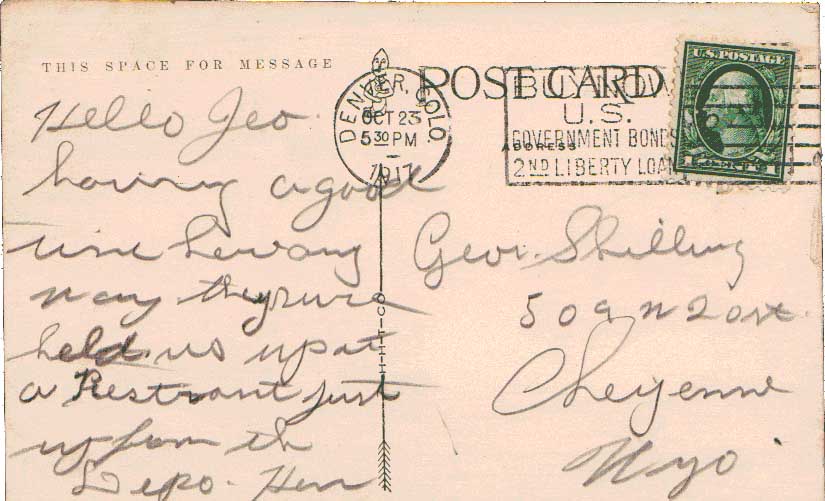 THIS SPACE FOR MESSAGE
POST CARD
ADDRESS
DENVER, COLO.
OCT 23
5 30 PM
1917
BUY NOW
U.S.
GOVERNMENT BONDS
2ND LIBERTY LOAN
U.S. POSTAGE
1 CENT 1
Hello Geo.
having a good
time
way they sure
held us up at
a Restrant just
up from th
Depo.
H-H-T-CO
Geo. Shilling
509 W 20 st.
Cheyenne
Wyo